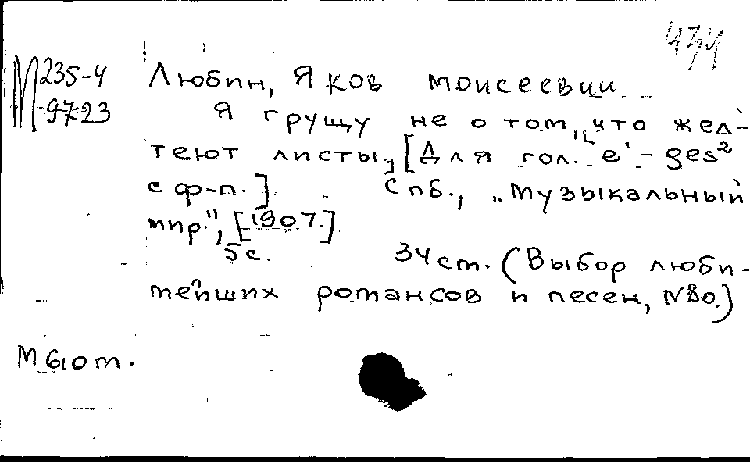 М 235-4 Любин, Яков Моисеевич
9723 Я грущу не о том, что жел-
теют листы, [Для гол. e' - ges²
с ф-п.] Спб., „Музыкальный
мир", [1907.]
5 с. 34 ст. (Выбор люби-
мейших романсов и песен, N 80.)
М 61 от.